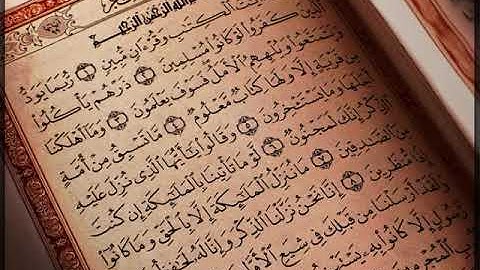 بِسْمِ اللَّهِ الرَّحْمَٰنِ الرَّحِيمِ
ءَايَٰتُ ٱلْكِتَٰبِ وَقُرْءَانٍ مُّبِينٍ ١ رُّبَمَا يَوَدُّ
ٱلَّذِينَ كَفَرُوا۟ لَوْ كَانُوا۟ مُسْلِمِينَ ٢ ذَرْهُمْ يَأْكُلُوا۟
وَيَتَمَتَّعُوا۟ وَيُلْهِهِمُ ٱلْأَمَلُ فَسَوْفَ يَعْلَمُونَ ٣ وَمَآ أَهْلَكْنَا
مِن قَرْيَةٍ إِلَّا وَلَهَا كِتَابٌ مَّعْلُومٌ ٤ مَّا تَسْبِقُ مِنْ أُمَّةٍ
أَجَلَهَا وَمَا يَسْتَـْٔخِرُونَ ٥ وَقَالُوا۟ يَٰٓأَيُّهَا ٱلَّذِى نُزِّلَ عَلَيْهِ
ٱلذِّكْرُ إِنَّكَ لَمَجْنُونٌ ٦ لَّوْ مَا تَأْتِينَا بِٱلْمَلَٰٓئِكَةِ إِن كُنتَ
مِنَ ٱلصَّٰدِقِينَ ٧ مَا نُنَزِّلُ ٱلْمَلَٰٓئِكَةَ إِلَّا بِٱلْحَقِّ وَمَا كَانُوٓا۟
إِذًا مُّنظَرِينَ ٨ إِنَّا نَحْنُ نَزَّلْنَا ٱلذِّكْرَ وَإِنَّا لَهُۥ لَحَٰفِظُونَ
وَلَقَدْ أَرْسَلْنَا مِن قَبْلِكَ فِى شِيَعِ ٱلْأَوَّلِينَ
رَّسُولٍ إِلَّا كَانُوا۟ بِهِۦ